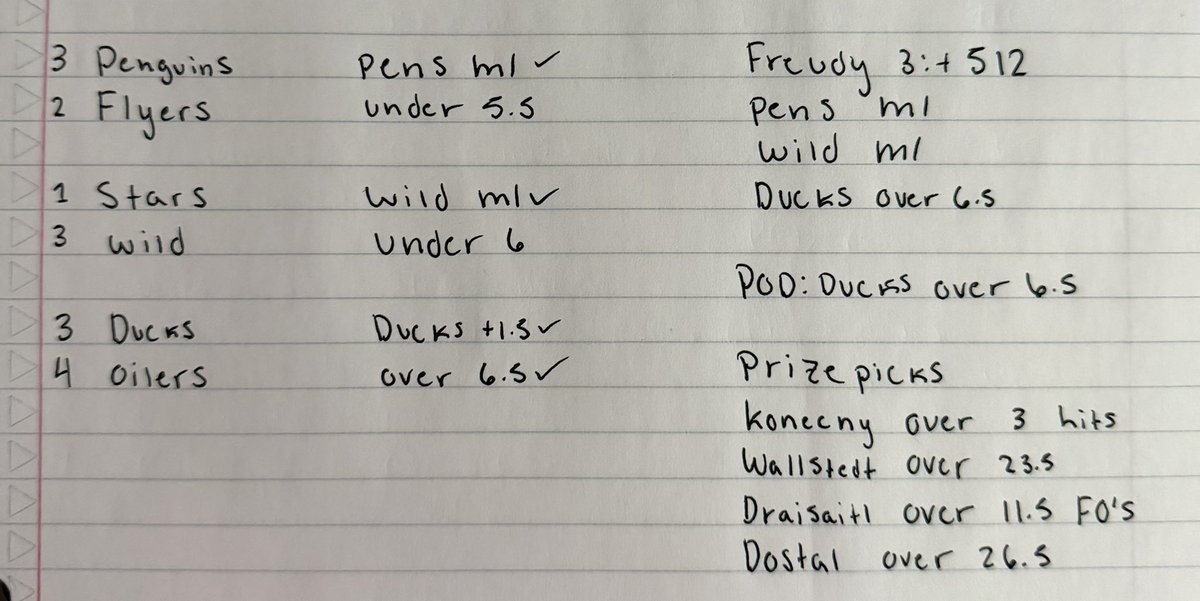 3 Penguins pens ml ✓
2 Flyers under 5.5
1 Stars Wild ml ✓
3 wild under 6
3 Ducks Ducks +1.5 ✓
4 oilers over 6.5 ✓
Freudy 3:+ 512
pens ml
wild ml
Ducks over 6.5
POD: Ducks over 6.5
Prizepicks
konecny over 3 hits
Wallstedt over 23.5
Draisaitl over 11.5 FO's
Dostal over 26.5